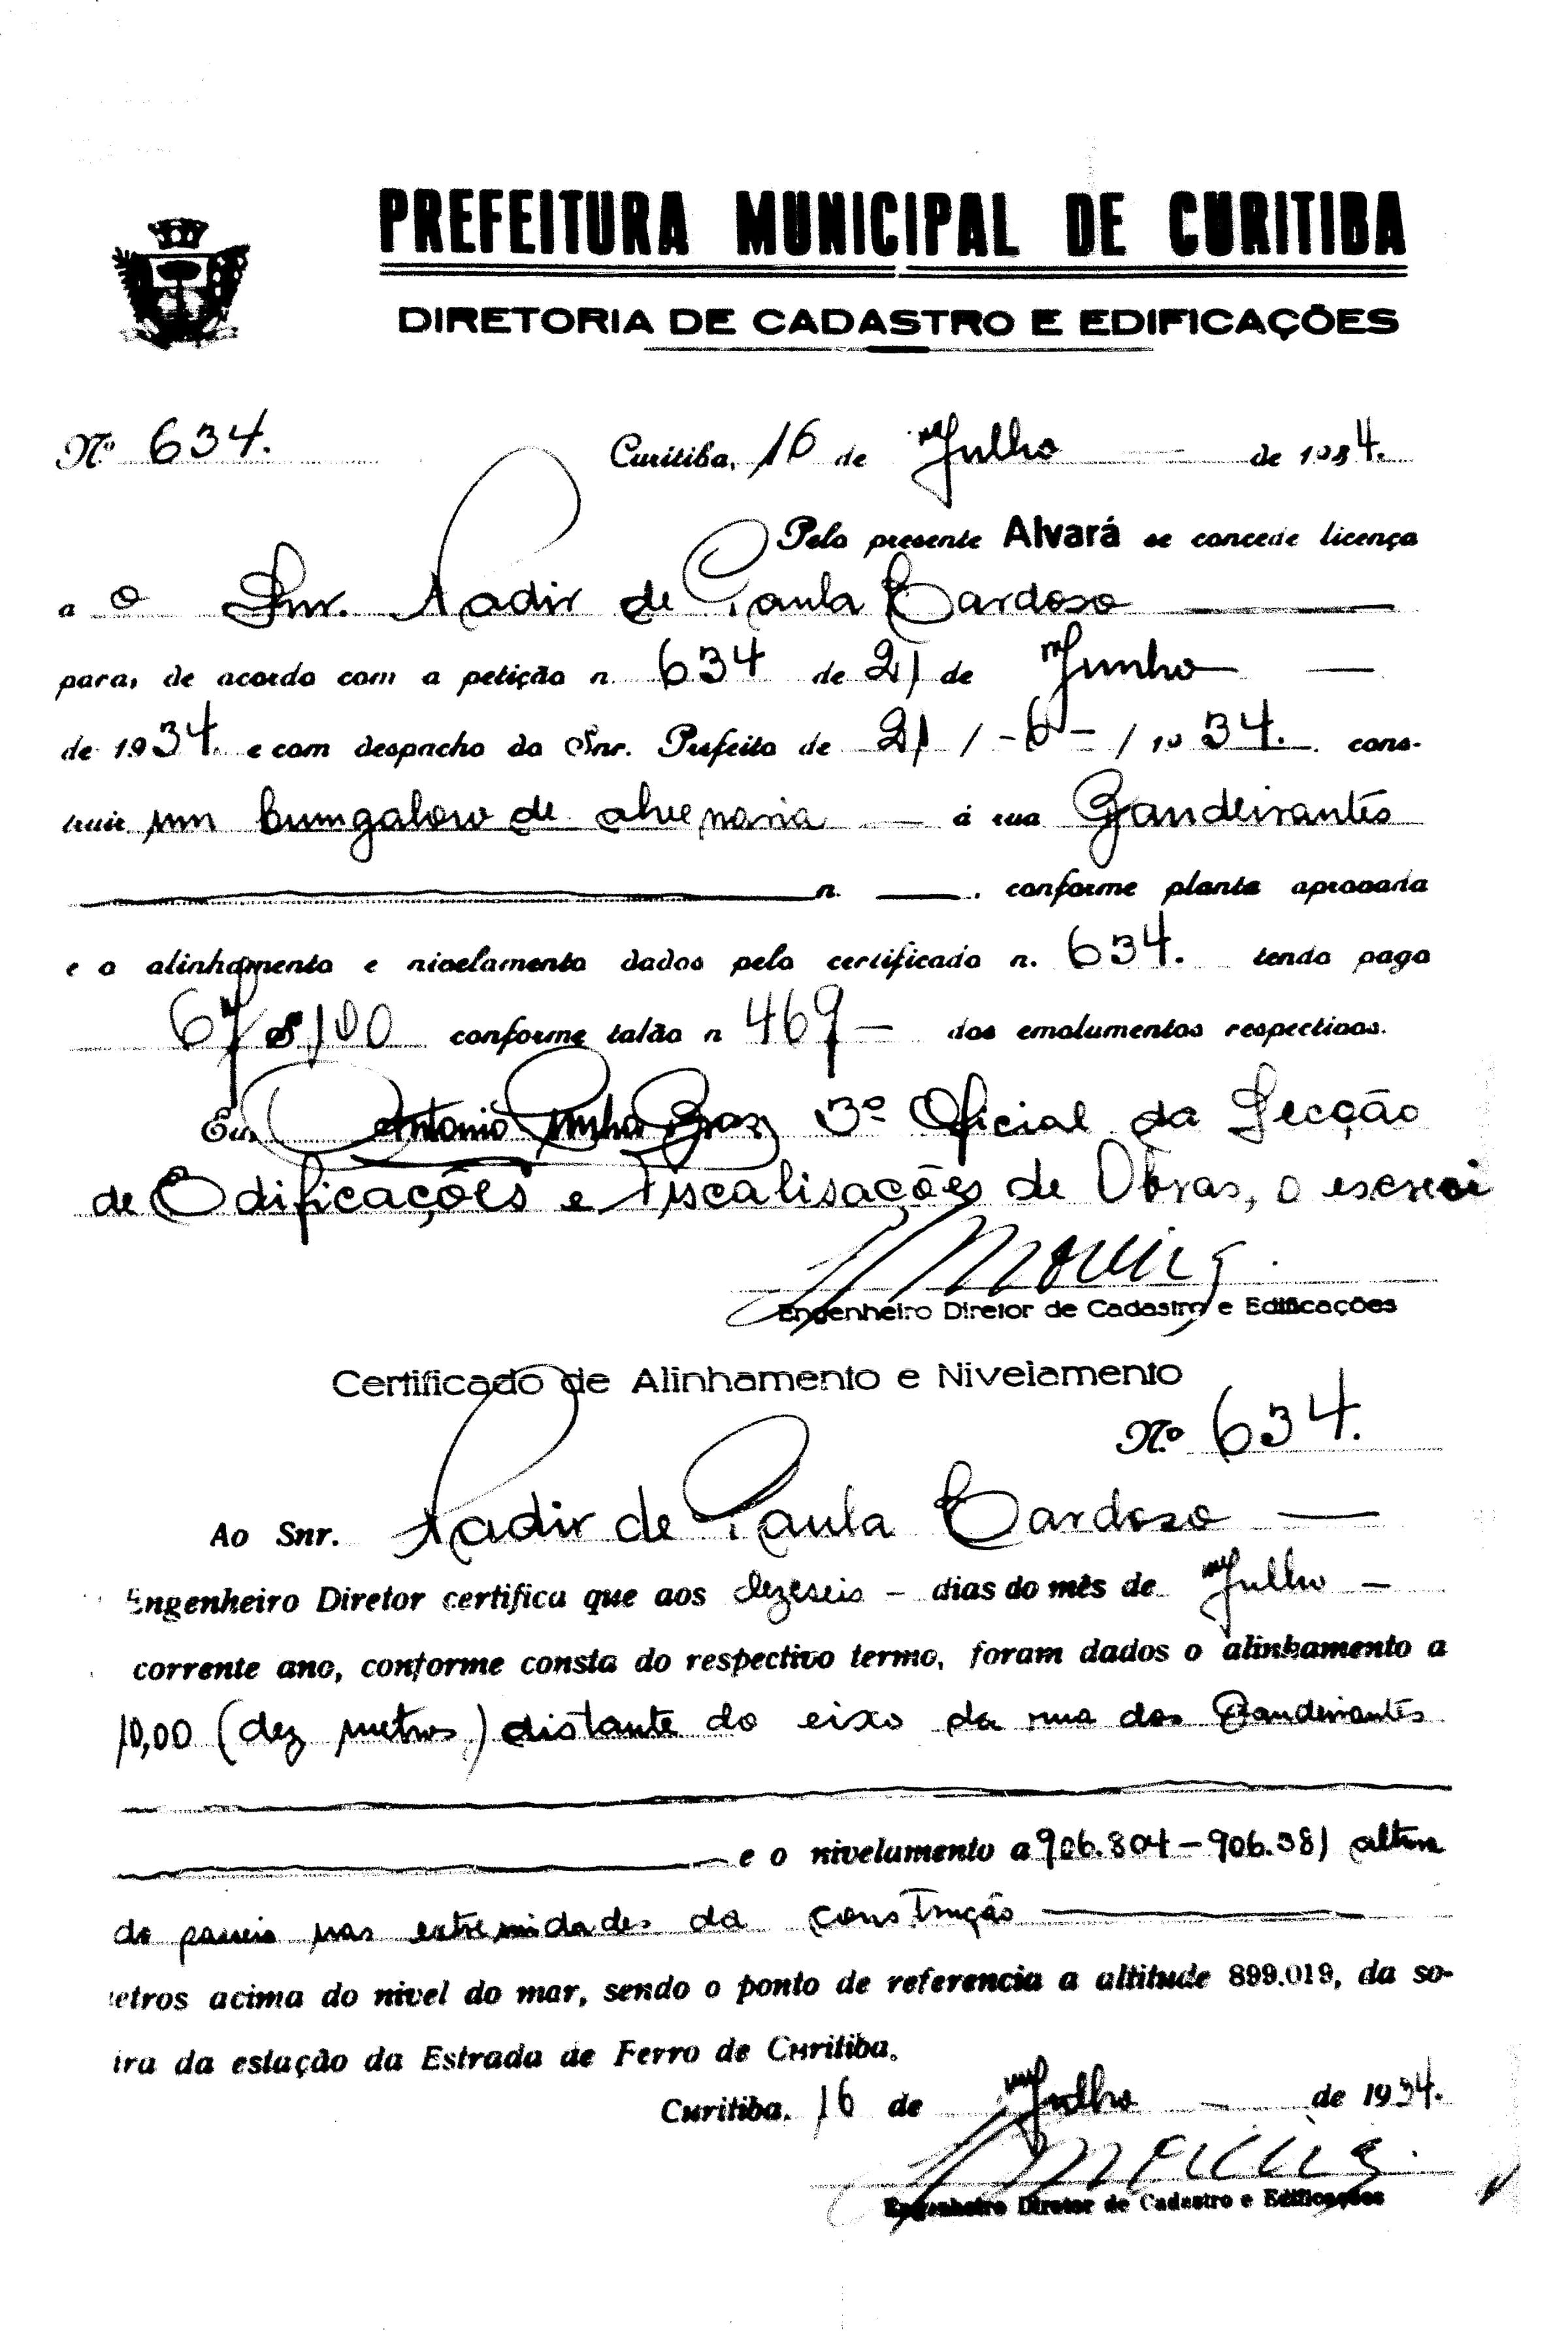 PREFEITURA MUNICIPAL DE CURITIBA
DIRETORIA DE CADASTRO E EDIFICAÇÕES
Nº 634. Curitiba, 16 de Julho de 1934.
Pelo presente Alvará se concede licença
a o Snr. Nadir de Paula Cardoso
para, de acordo com a petição n. 634 de 21 de Junho
de 1934. e com despacho do Snr. Prefeito de 21 / - 6 - / 1934. cons-
truir um bungalow de alvenaria á rua Bandeirantes
n. , conforme planta aprovada
e o alinhamento e nivelamento dados pelo certificado n. 634. tendo pago
67$100 conforme talão n 469 - dos emolumentos respectivos.
Eu, Antonio Braz 3º Oficial da Secção
de Edificações e Fiscalisações de Obras, o escrevi
Engenheiro Diretor de Cadastro e Edificações
Certificado de Alinhamento e Nivelamento
Nº 634.
Ao Snr. Nadir de Paula Cardoso
Engenheiro Diretor certifica que aos dezeseis - dias do mês de Julho -
corrente ano, conforme consta do respectivo termo, foram dados o alinhamento a
10,00 (dez metros) distante do eixo da rua dos Bandeirantes
e o nivelamento a 906.804 - 906.381 altura
do passeio nas extremidades da construção
etros acima do nivel do mar, sendo o ponto de referencia a altitude 899.019, da so-
ira da estação da Estrada de Ferro de Curitiba.
Curitiba, 16 de Julho de 1934.
Engenheiro Diretor de Cadastro e Edificações